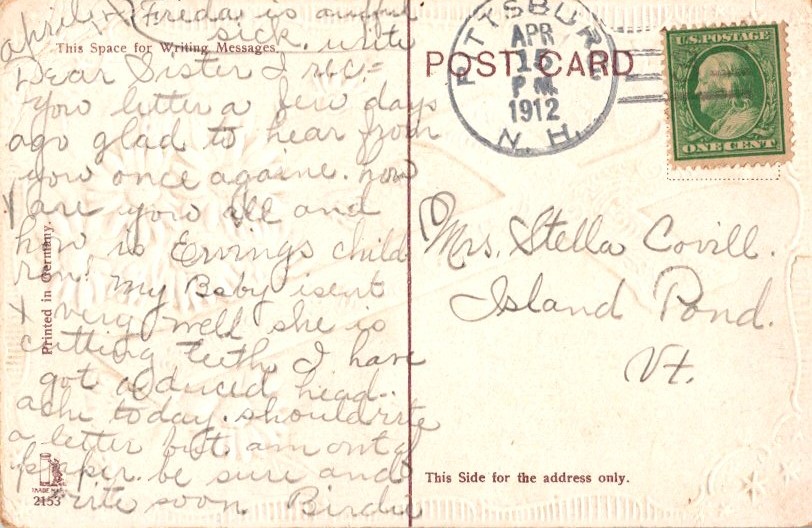 april Freda is awful
sick. write
This Space for Writing Messages.
Dear Sister I rec=
you letter a few days
ago glad to hear from
you once againe. how
are you all and
how is Ervings child
ren. my Baby isent
very well she is
cutting teeth I have
got a duced head-
ache today. should rite
a letter but am out of
paper. be sure and
write soon Birdie
Printed in Germany.
TRADE MARK
2153
POST CARD
PITTSBURG
APR
15
P M
1912
N. H.
U.S. POSTAGE
ONE CENT
Mrs. Stella Covill.
Island Pond.
Vt.
This Side for the address only.